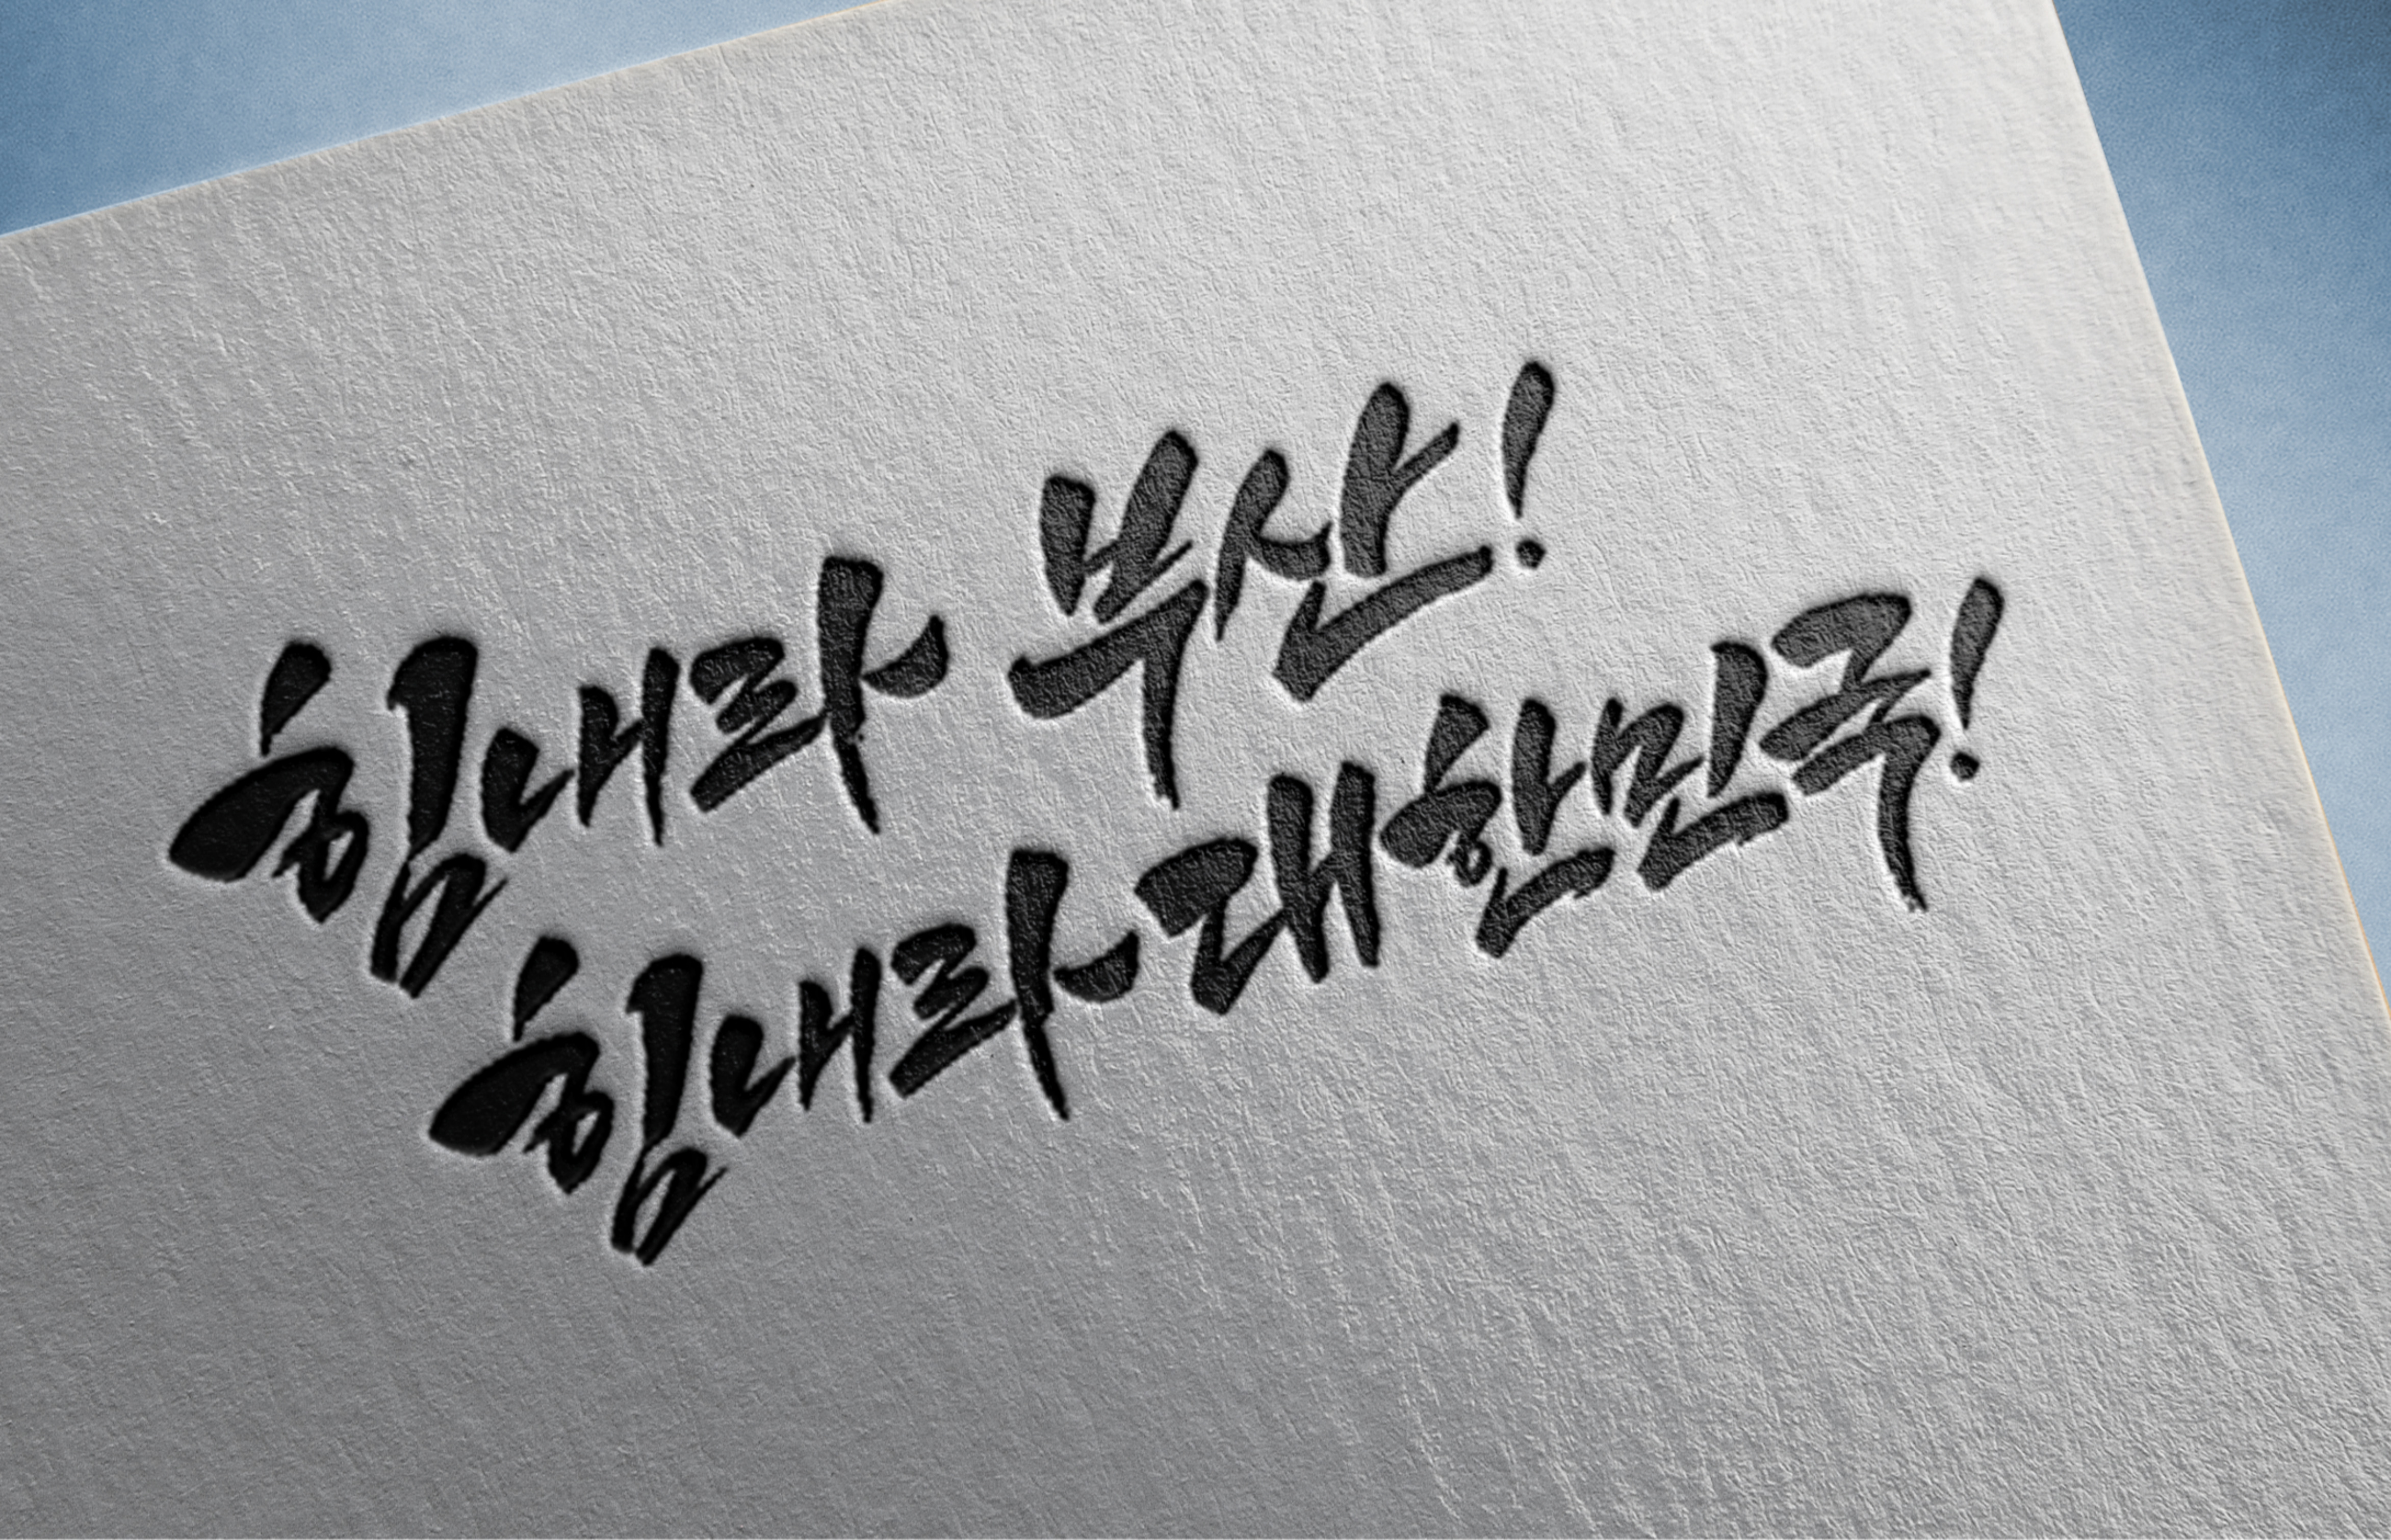 힘내라 부산!
힘내라 대한민국!